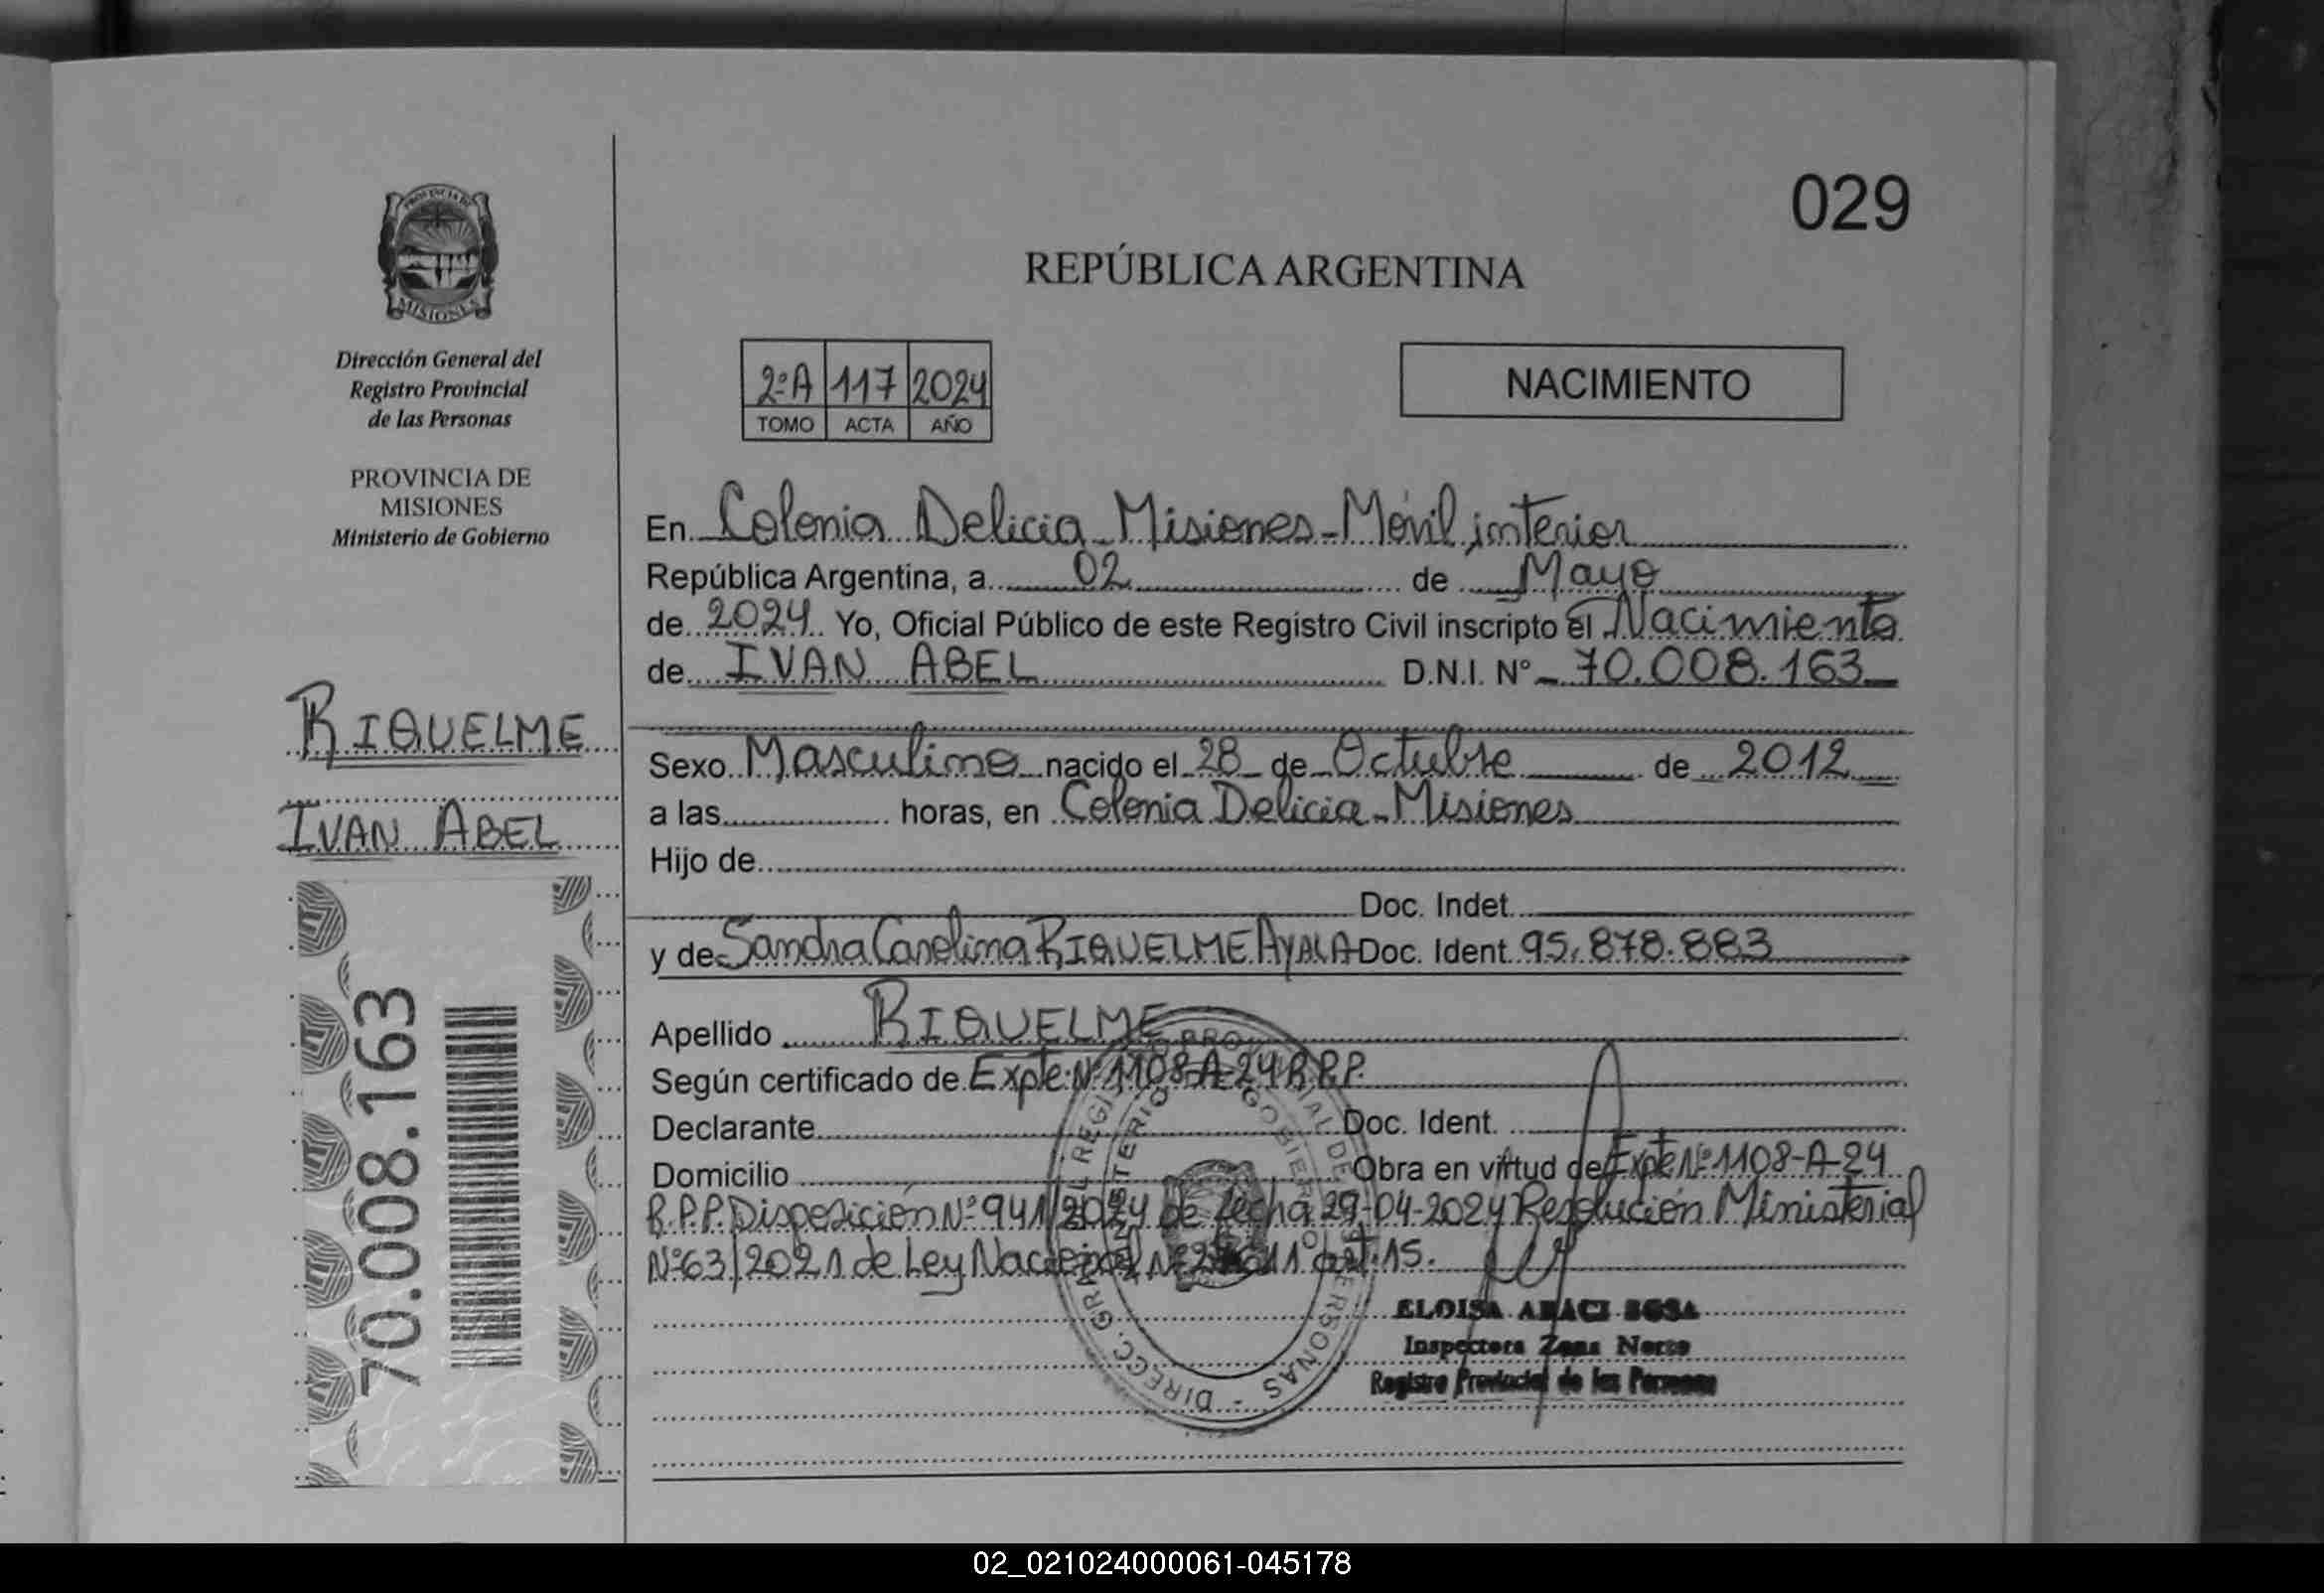 029
REPÚBLICA ARGENTINA
PROVINCIA DE
MISIONES
Dirección General del
Registro Provincial
de las Personas
PROVINCIA DE
MISIONES
Ministerio de Gobierno
RIQUELME
IVAN ABEL
70.008.163
2ºA 117 2024
TOMO ACTA AÑO
NACIMIENTO
En Colonia Delicia - Misiones - Móvil interior
República Argentina, a 02 de Mayo
de 2024 Yo, Oficial Público de este Registro Civil inscripto el Nacimiento
de IVAN ABEL D.N.I. Nº 70.008.163
Sexo Masculino nacido el 28 de Octubre de 2012
a las horas, en Colonia Delicia - Misiones
Hijo de
Doc. Indet.
y de Sandra Carolina RIQUELME AYALA Doc. Ident. 95.878.883
Apellido RIQUELME
Según certificado de Expte Nº 1108-A-24 R.P.P.
Declarante Doc. Ident.
Domicilio Obra en virtud de Expte Nº 1108-A-24
R.P.P. Disposición Nº 941/2024 de fecha 29-04-2024 Resolución Ministerial
Nº 63/2021 de Ley Nacional Nº art. 15.
ELOISA ARACI SOSA
Inspectora Zona Norte
Registro Provincial de las Personas
DIRECC. GRAL. REGISTRO PROVINCIAL DE LAS PERSONAS -
MINISTERIO DE GOBIERNO
02_021024000061-045178